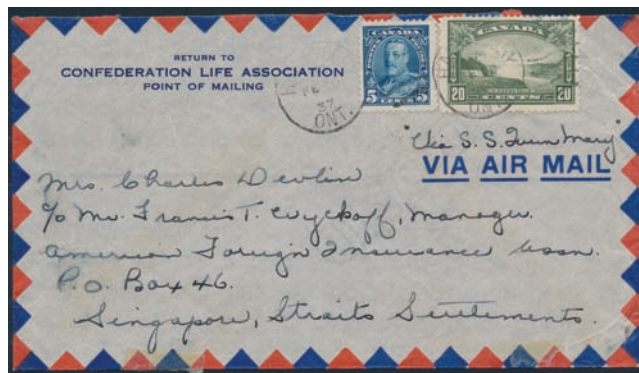 RETURN TO
CONFEDERATION LIFE ASSOCIATION
POINT OF MAILING
CANADA
5 CENTS 5
FE
37
ONT.
CANADA
20 CENTS 20
ONT.
"Via S. S. Queen Mary"
VIA AIR MAIL
Mrs. Charles Devlin
c/o Mr. Francis T. Wyckoff, Manager.
American Foreign Insurance Assn.
P.O. Box 46.
Singapore, Straits Settlements.